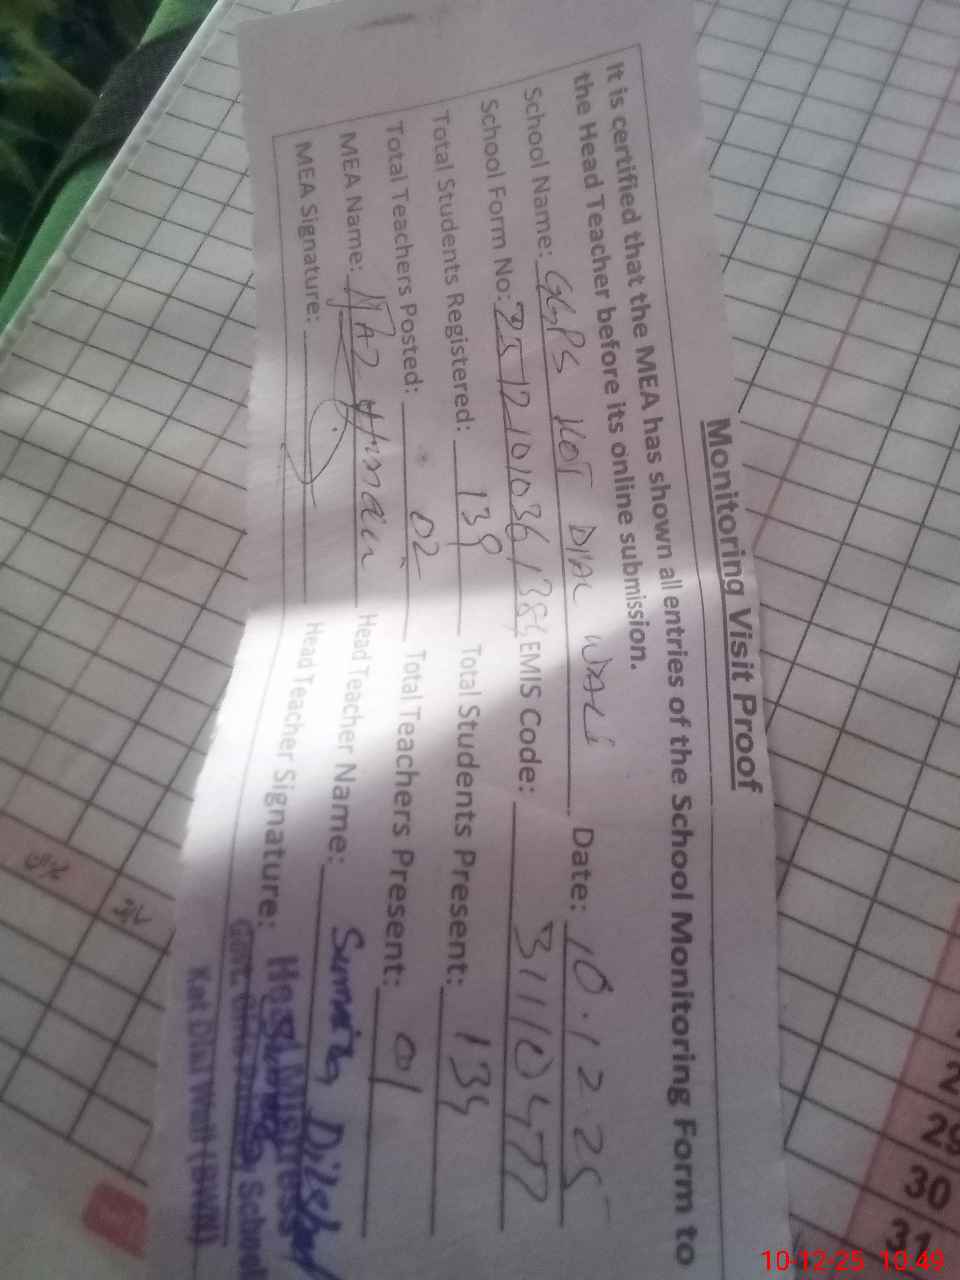 Monitoring Visit Proof
It is certified that the MEA has shown all entries of the School Monitoring Form to
the Head Teacher before its online submission.
School Name: GGPS KOT DIAL WALI Date: 10.12.25
School Form No: EMIS Code: 31110477
Total Students Registered: 139 Total Students Present: 134
Total Teachers Posted: 02 Total Teachers Present: 01
MEA Name: Head Teacher Name: Sumaira
MEA Signature: Head Teacher Signature:
Head Mistress
Govt. Girls School
Kot Dial Wali (BWN)
29
30
31
10-12-25 10:49